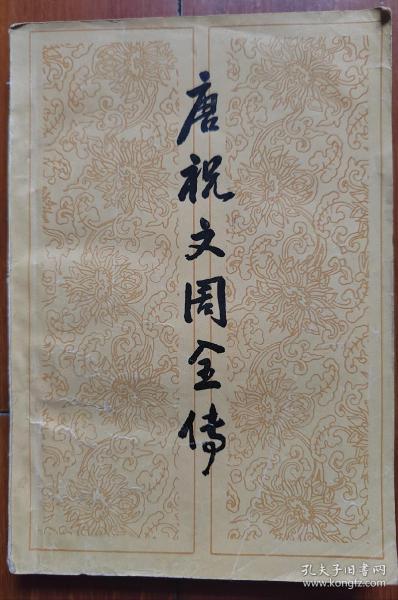 唐祝文周全傳
孔夫子旧书网
www.kongfz.com